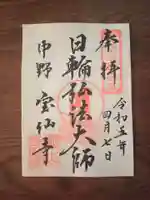 奉拝
令和五年
四月七日
日輪弘法大師
中野
宝仙寺